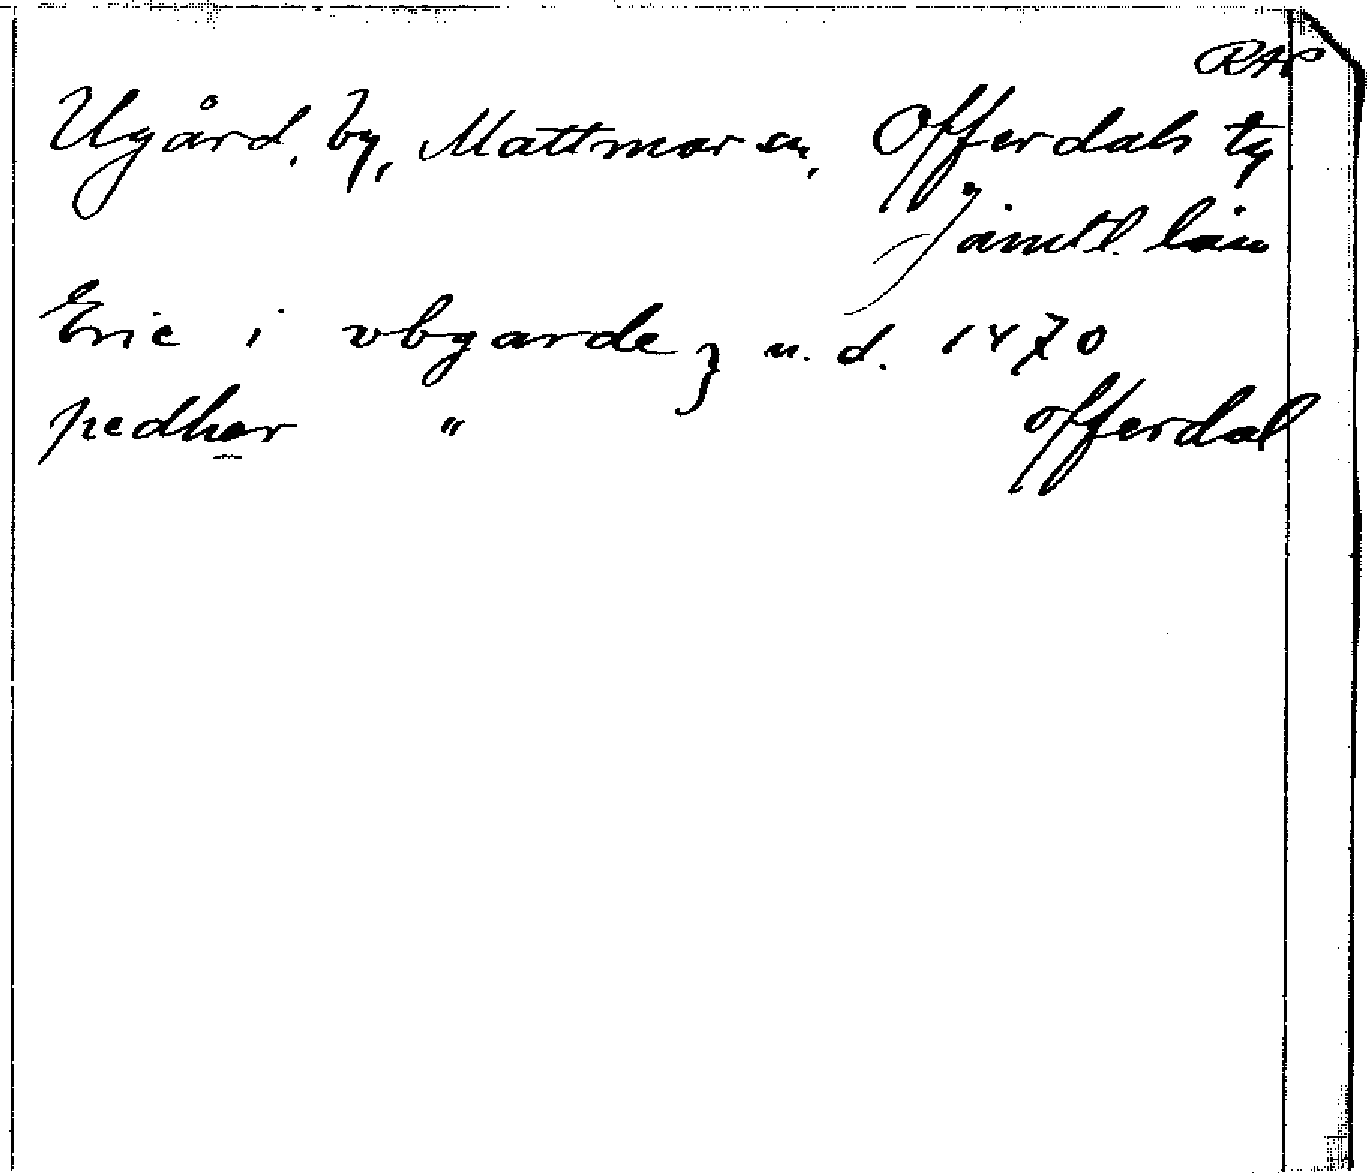 RAP
Ugård, by, Mattmar sn, Offerdals tg
Jämtl. län
Eric i vbgarde } u. d. 1470
pedher " offerdal